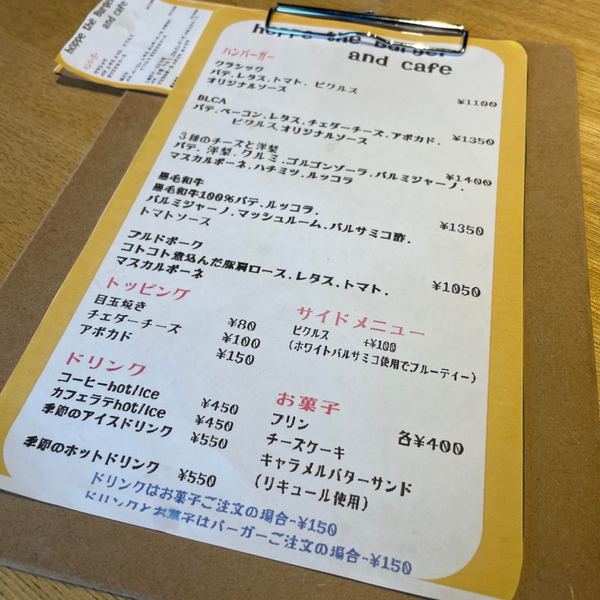 hoppe the Burger
and cafe
hoppe the Burger
and cafe
ハンバーガー
クラシック
パテ.レタス.トマト. ピクルス
オリジナルソース
¥1100
BLCA
パテ.ベーコン.レタス.チェダーチーズ.アボカド.
ピクルス.オリジナルソース
¥1350
3種のチーズと洋梨
パテ. 洋梨.クルミ.ゴルゴンゾーラ.パルミジャーノ.
マスカルポーネ.ハチミツ.ルッコラ
¥1400
黒毛和牛
黒毛和牛100%パテ.ルッコラ.
パルミジャーノ.マッシュルーム.バルサミコ酢.
トマトソース
¥1350
プルドポーク
コトコト煮込んだ豚肩ロース.レタス.トマト.
マスカルポーネ
¥1050
トッピング
目玉焼き ¥80
チェダーチーズ ¥100
アボカド ¥150
サイドメニュー
ピクルス +¥100
(ホワイトバルサミコ使用でフルーティー)
ドリンク
コーヒーhot/ice ¥450
カフェラテhot/ice ¥450
季節のアイスドリンク ¥550
季節のホットドリンク ¥550
お菓子
プリン
チーズケーキ 各¥400
キャラメルバターサンド
(リキュール使用)
ドリンクはお菓子ご注文の場合-¥150
ドリンクとお菓子はバーガーご注文の場合-¥150